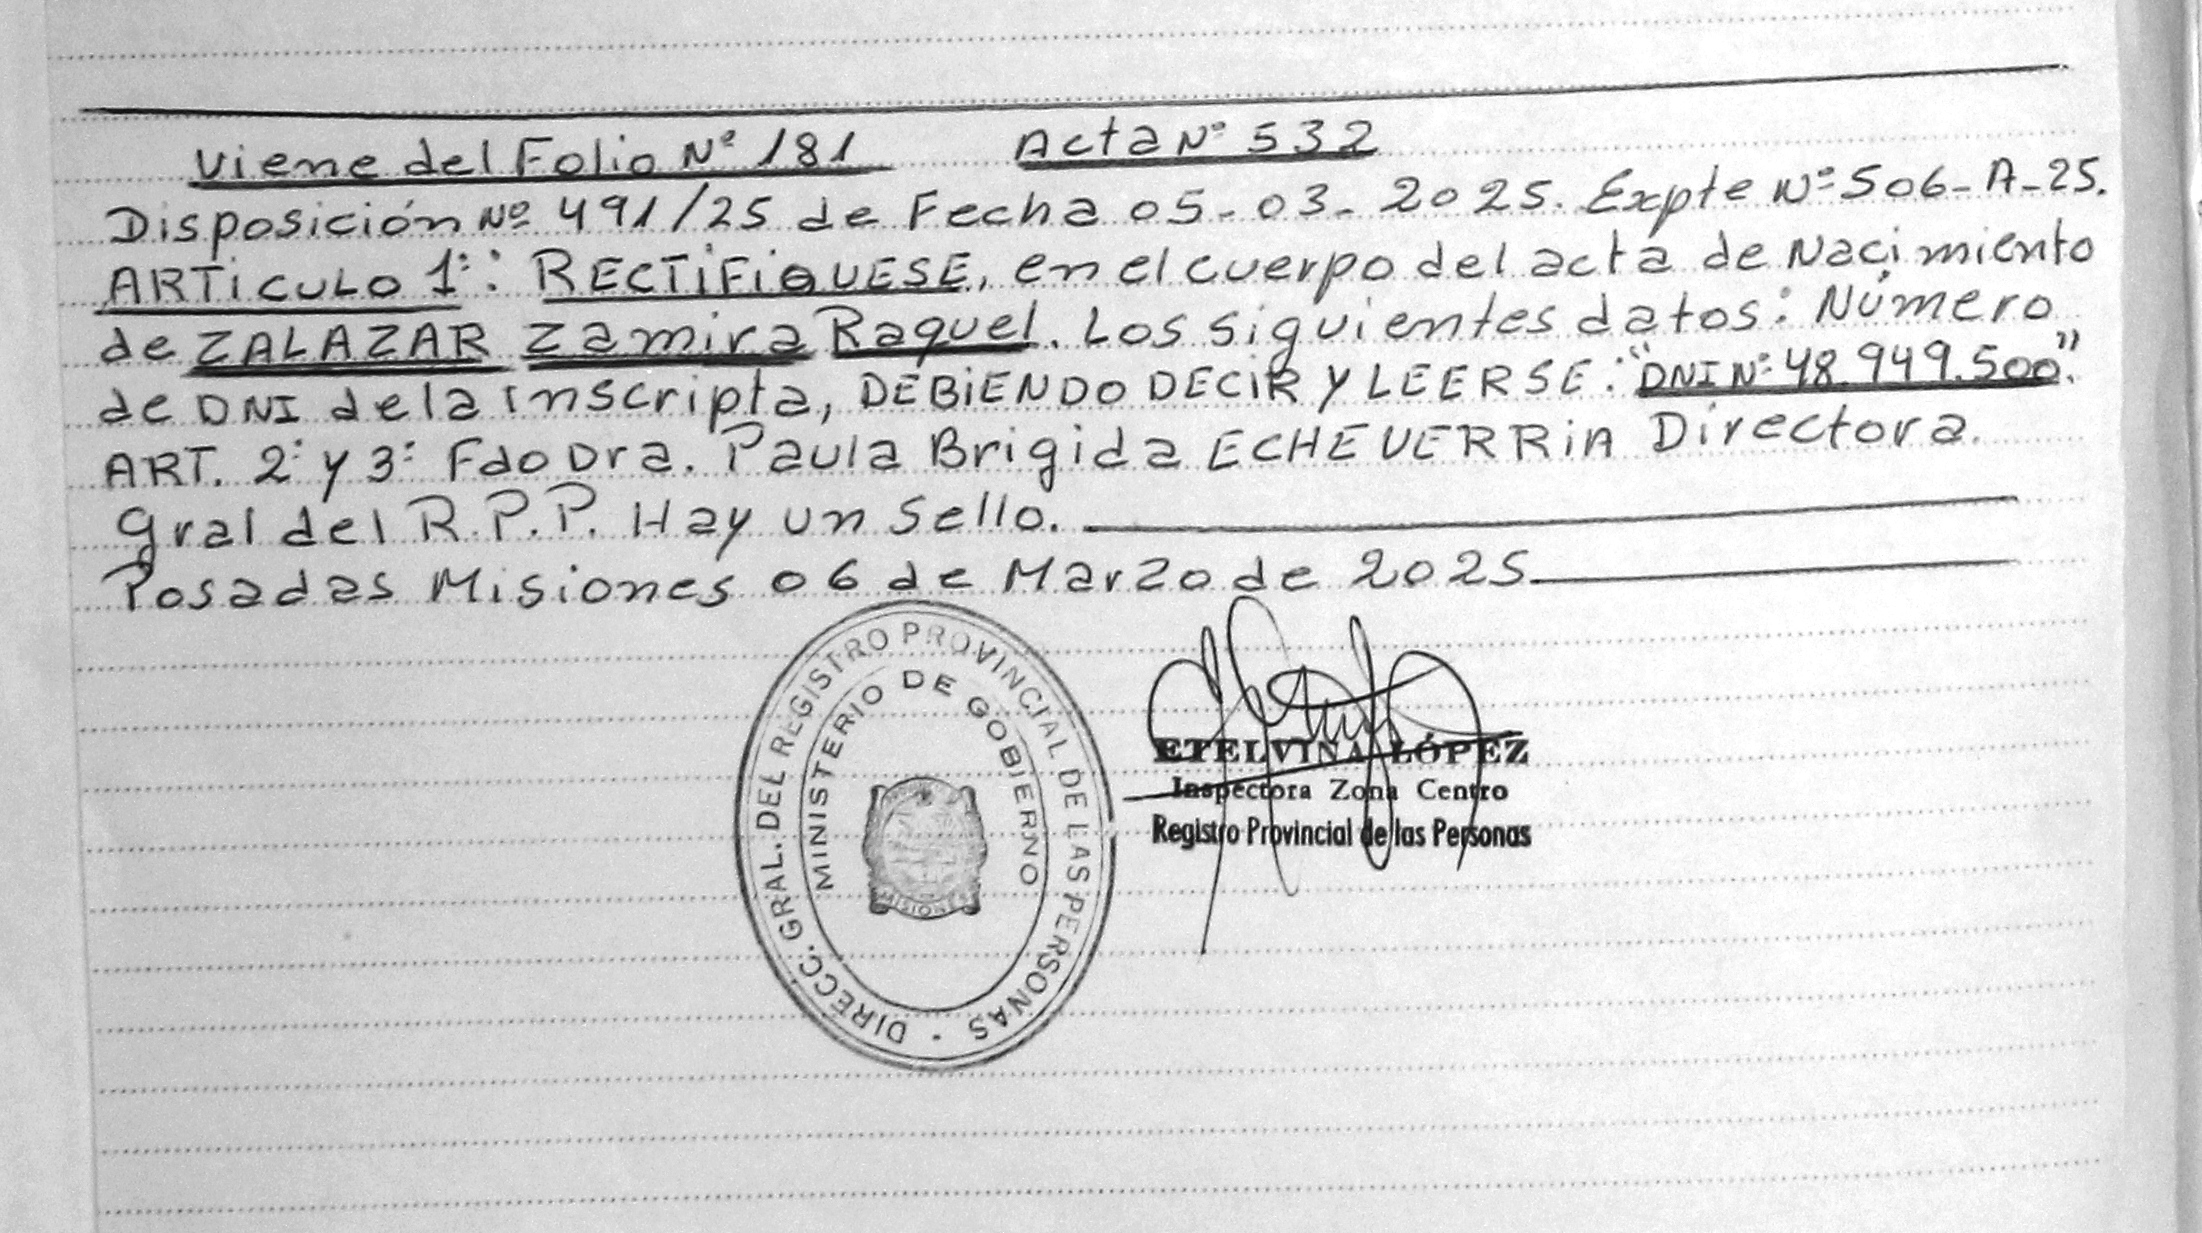 Viene del Folio Nº 181 Acta Nº 532
Disposición Nº 491/25 de Fecha 05-03-2025. Expte Nº 506-A-25.
ARTICULO 1º: RECTIFIQUESE, en el cuerpo del acta de Nacimiento
de ZALAZAR Zamira Raquel. Los siguientes datos: Número
de DNI de la inscripta, DEBIENDO DECIR Y LEERSE: "DNI Nº 48.949.500".
ART. 2º y 3º Fdo Dra. Paula Brigida ECHEVERRIA Directora
Gral del R.P.P. Hay un Sello.
Posadas Misiones 06 de Marzo de 2025
DIRECC. GRAL. DEL REGISTRO PROVINCIAL DE LAS PERSONAS
MINISTERIO DE GOBIERNO
MISIONES
ETELVINA LÓPEZ
Inspectora Zona Centro
Registro Provincial de las Personas